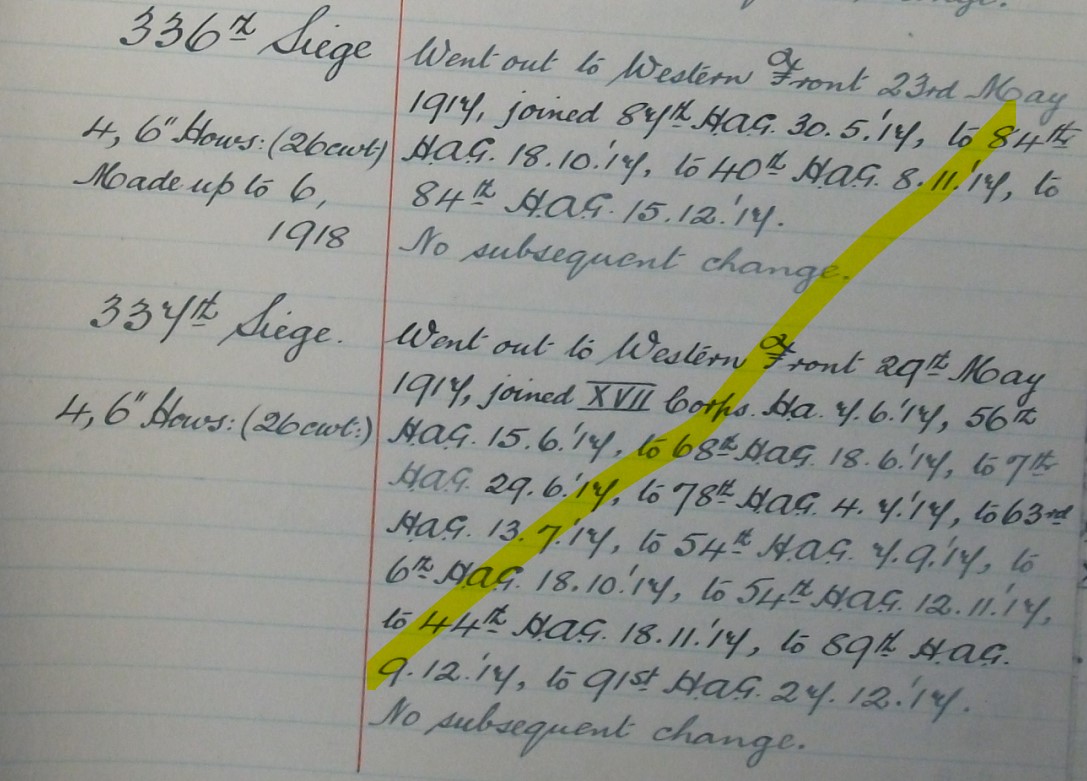 336th Siege
4, 6" Hows: (26cwt)
Made up to 6,
1918
Went out to Western Front 23rd May
1917, joined 87th H.A.G. 30.5.'17, to 84th
H.A.G. 18.10.'17, to 40th H.A.G. 8.11.'17, to
84th H.A.G. 15.12.'17.
No subsequent change.
337th Siege.
4, 6" Hows: (26cwt:)
Went out to Western Front 29th May
1917, joined XVII Corps. H.a. 7.6.'17, 56th
H.A.G. 15.6.'17, to 68th H.A.G. 18.6.'17, to 7th
H.A.G. 29.6.'17, to 78th H.A.G. 4.7.'17, to 63rd
H.A.G. 13.7.'17, to 54th H.A.G. 7.9.'17, to
6th H.A.G. 18.10.'17, to 54th H.A.G. 12.11.'17,
to 44th H.A.G. 18.11.'17, to 89th H.A.G.
9.12.'17, to 91st H.A.G. 27.12.'17.
No subsequent change.